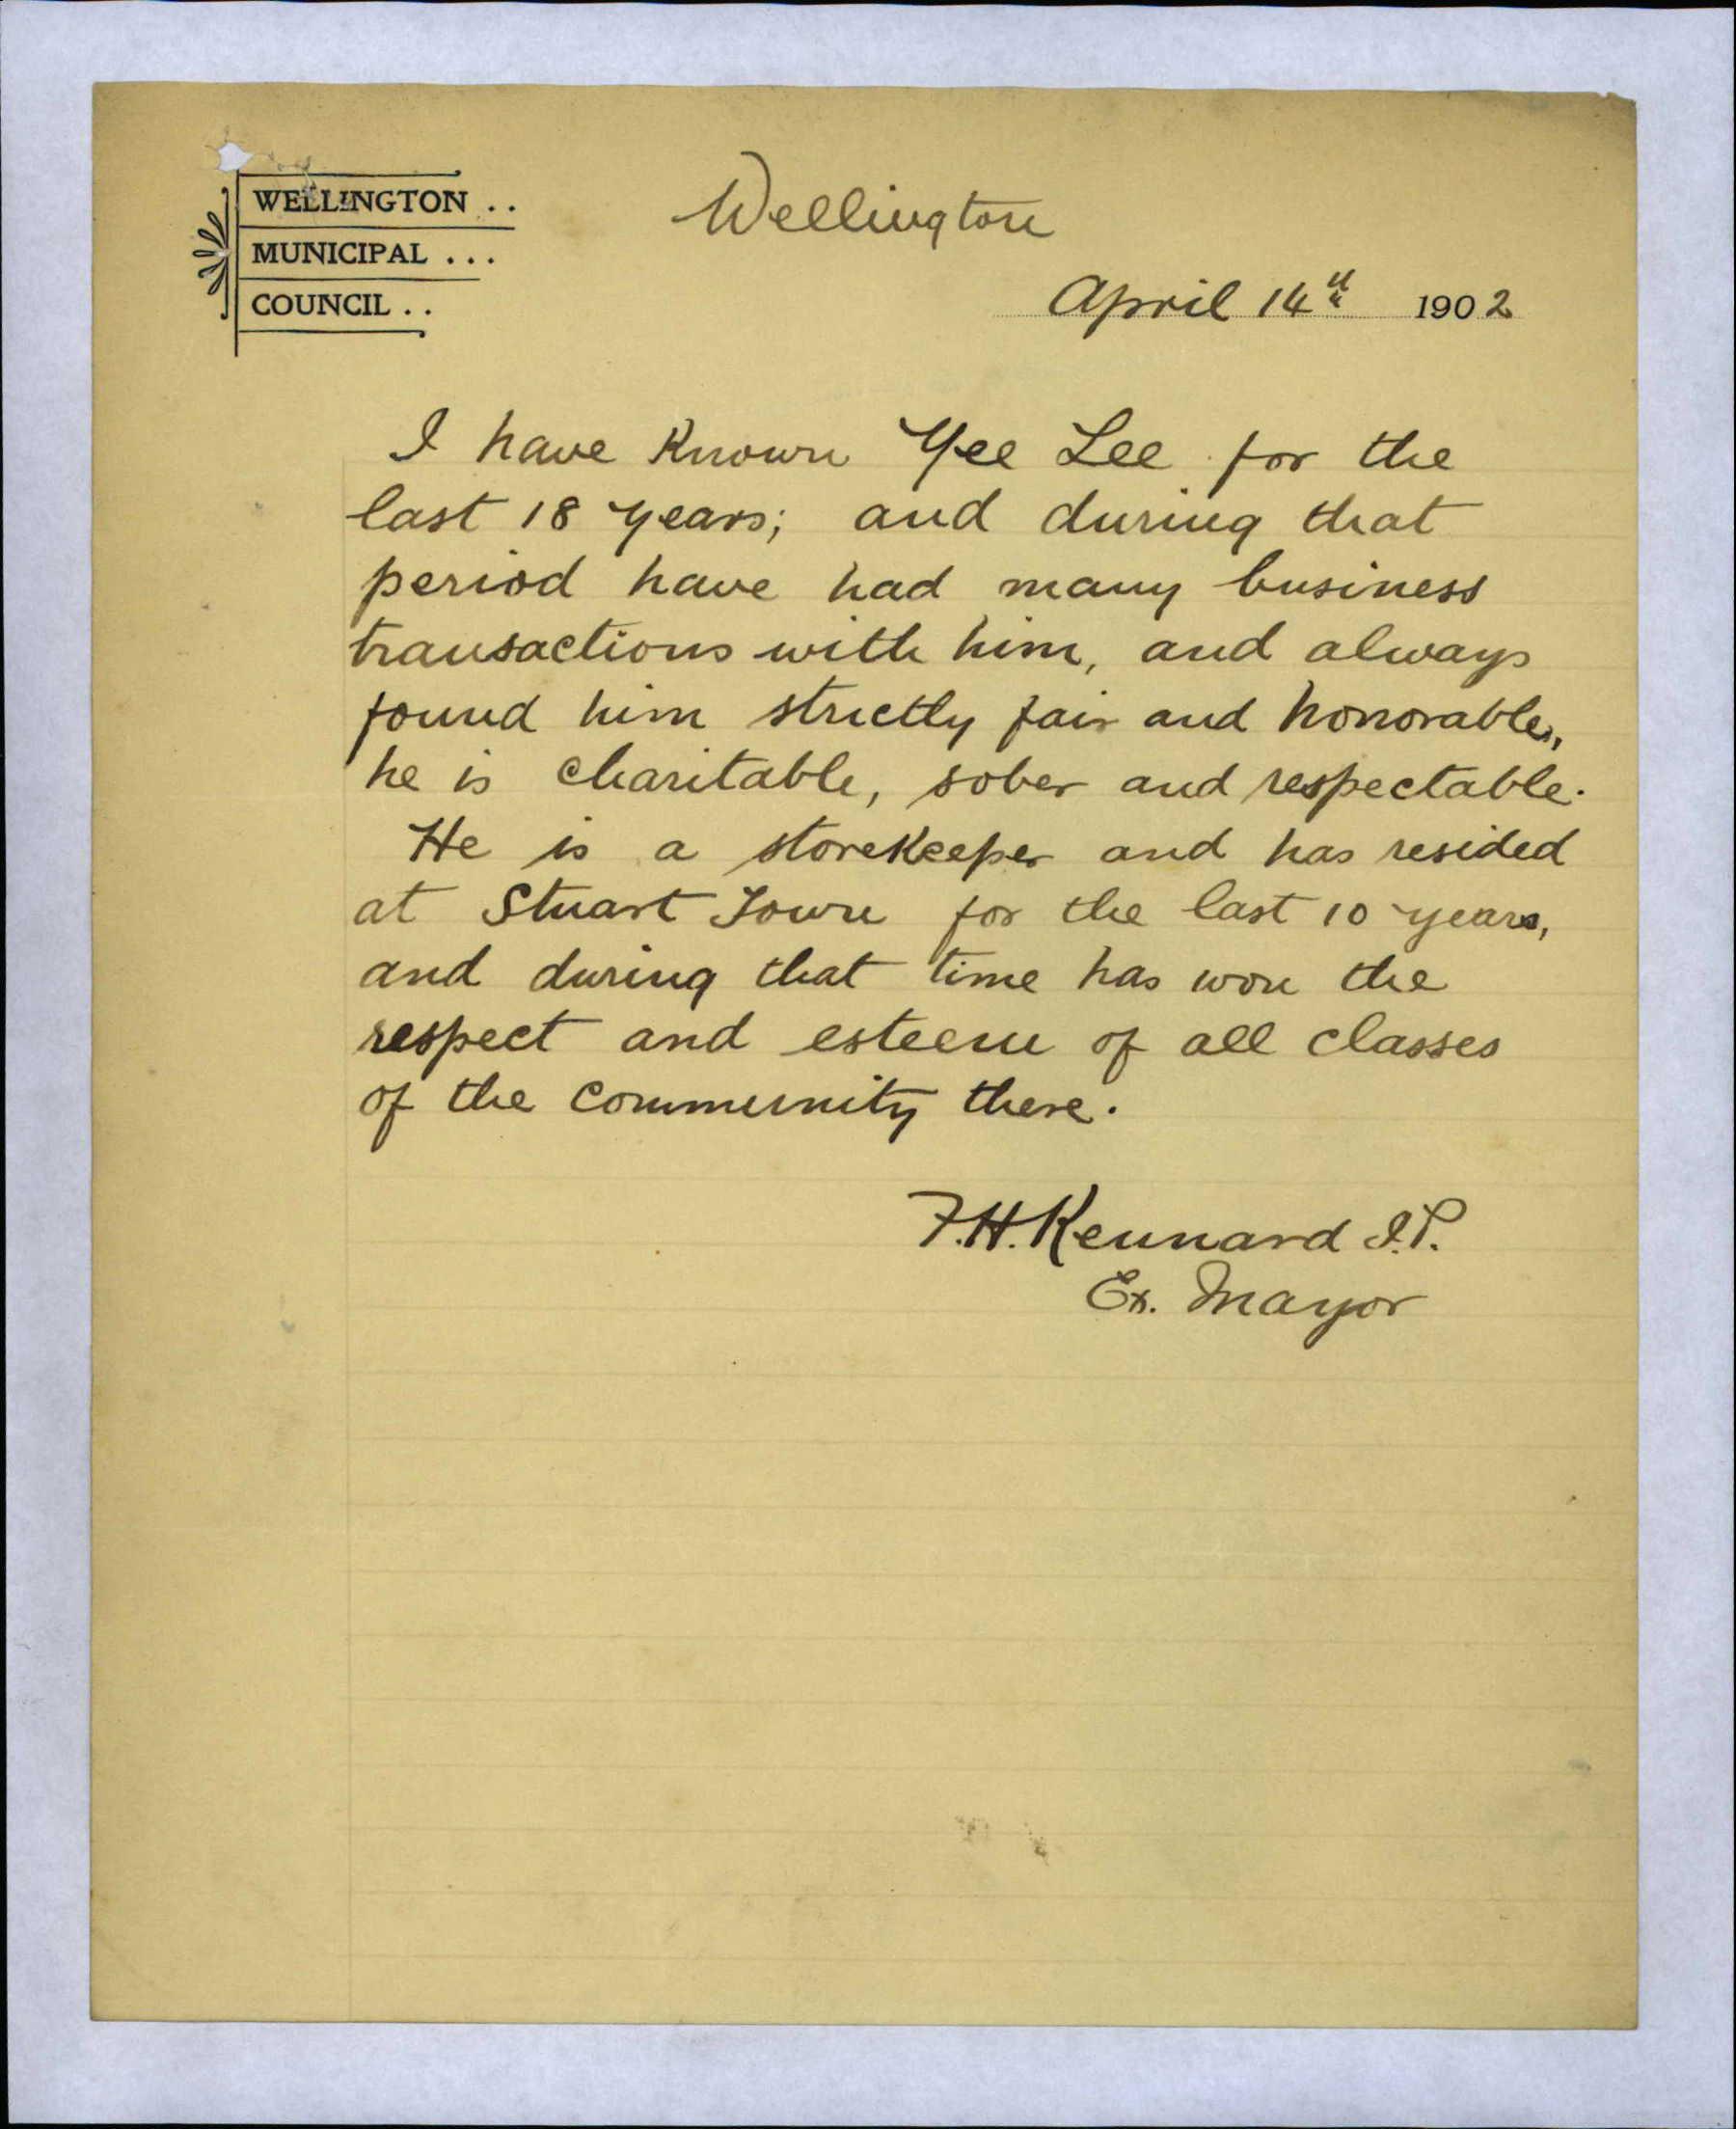 WELLINGTON . .
MUNICIPAL . . .
COUNCIL . .
Wellington
April 14th 1902
I have Known Yee Lee for the
last 18 years; and during that
period have had many business
transactions with him, and always
found him strictly fair and honorable,
he is charitable, sober and respectable.
He is a storeKeeper and has resided
at Stuart Town for the last 10 years,
and during that time has won the
respect and esteem of all classes
of the community there.
F.H. Kennard J.P.
Ex. Mayor